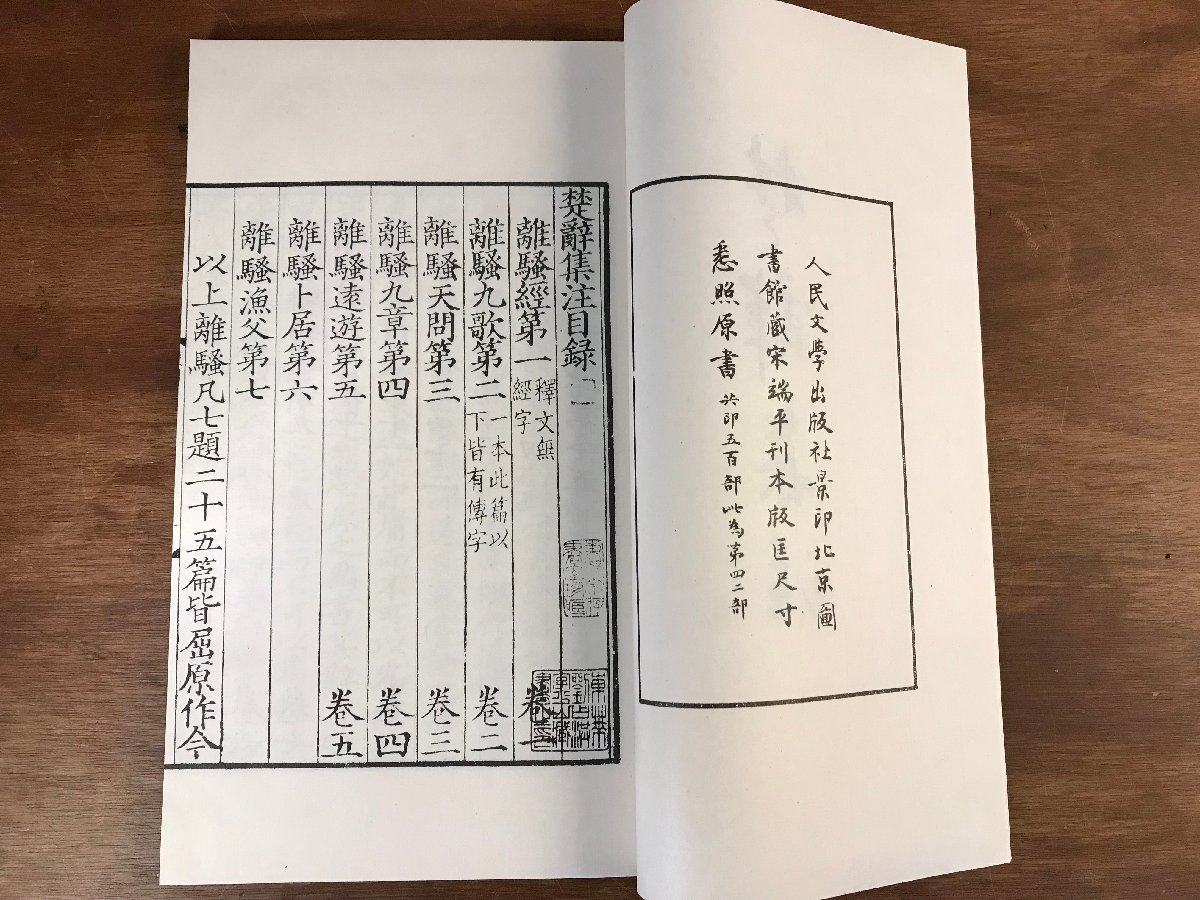 人民文學出版社景印北京圖
書館藏宋端平刊本版匡尺寸
悉照原書共印五百部此為第四二部
楚辭集注目録
離騷經第一 釋文無經字 卷一
離騷九歌第二 一本此篇以下皆有傳字 卷二
離騷天問第三 卷三
離騷九章第四 卷四
離騷遠遊第五 卷五
離騷卜居第六
離騷漁父第七
以上離騷凡七題二十五篇皆屈原作今